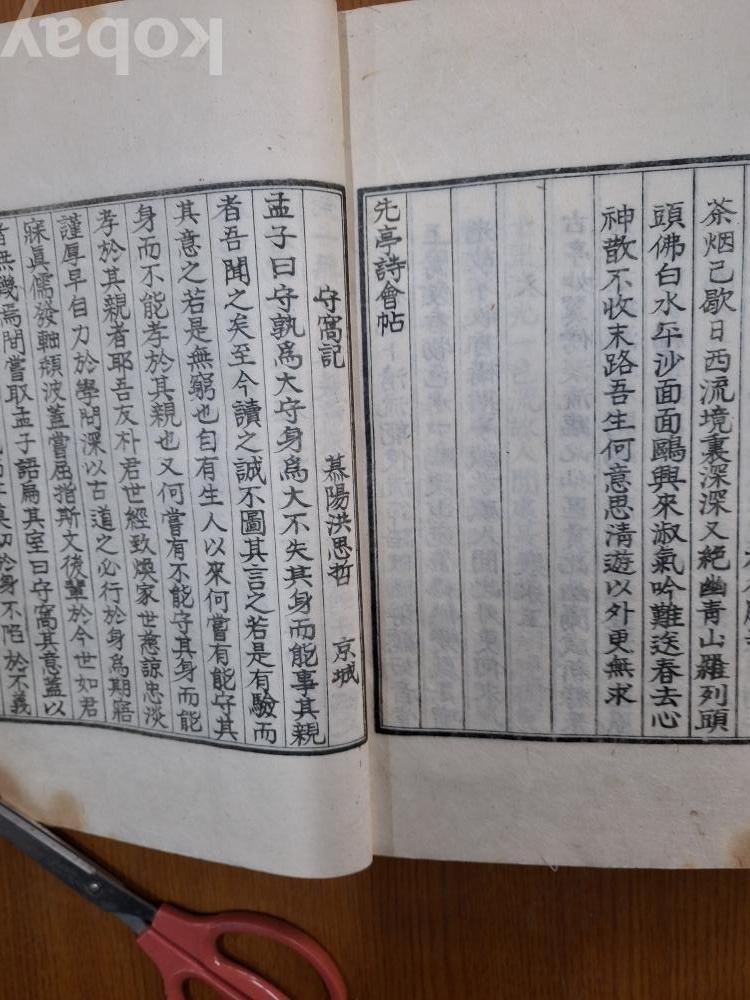 kobay
茶烟已歇日西流境裏深深又絶幽青山羅列頭
頭佛白水平沙面面鷗興來淑氣吟難送春去心
神散不收末路吾生何意思淸遊以外更無求
先亭詩會帖
守窩記 慕陽洪思哲 京城
孟子曰守孰爲大守身爲大不失其身而能事其親
者吾聞之矣至今讀之誠不圖其言之若是有驗而
其意之若是無窮也自有生人以來何嘗有能守其
身而不能孝於其親也又何嘗有不能守其身而能
孝於其親者耶吾友朴君世經致煥家世慈諒忠淡
謹厚早自力於學問深以古道之必行於身爲期寤
寐眞儒發軔頹波蓋嘗屈指斯文後輩於今世如君
者無幾焉間嘗取孟子語扁其室曰守窩其意蓋以
於身不陷於不義